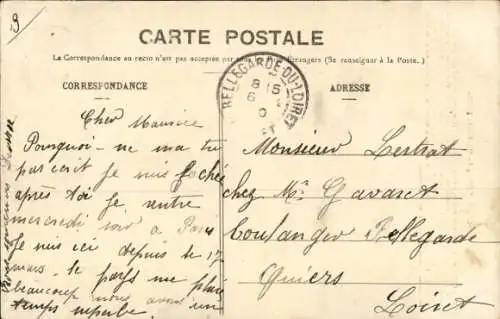 CARTE POSTALE
La Correspondance au recto n'est pas acceptée par Étrangers (Se renseigner à la Poste.)
CORRESPONDANCE
ADRESSE
BELLEGARDE-DU-LOIRET
8 15
6
Cher Maurice
Pourquoi ne ma tu
pas écrit Je suis faché
après toi Je rentre
mercredi soir a Paris
Je suis ici depuis le 17
mars. le pays me plais
beaucoup nous avons un
temps superbe
Monsieur Lestrat
chez Mr Gavaret
boulanger Bellegarde
Quiers
Loiret